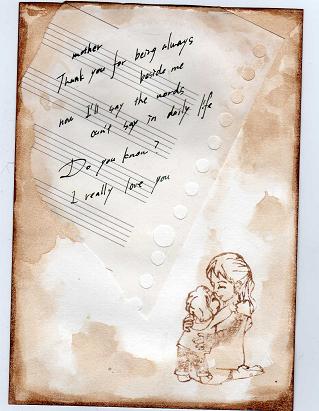 mother
Thank you for being always
beside me
now I'll say the words
can't say in daily life
Do you know?
I really love you